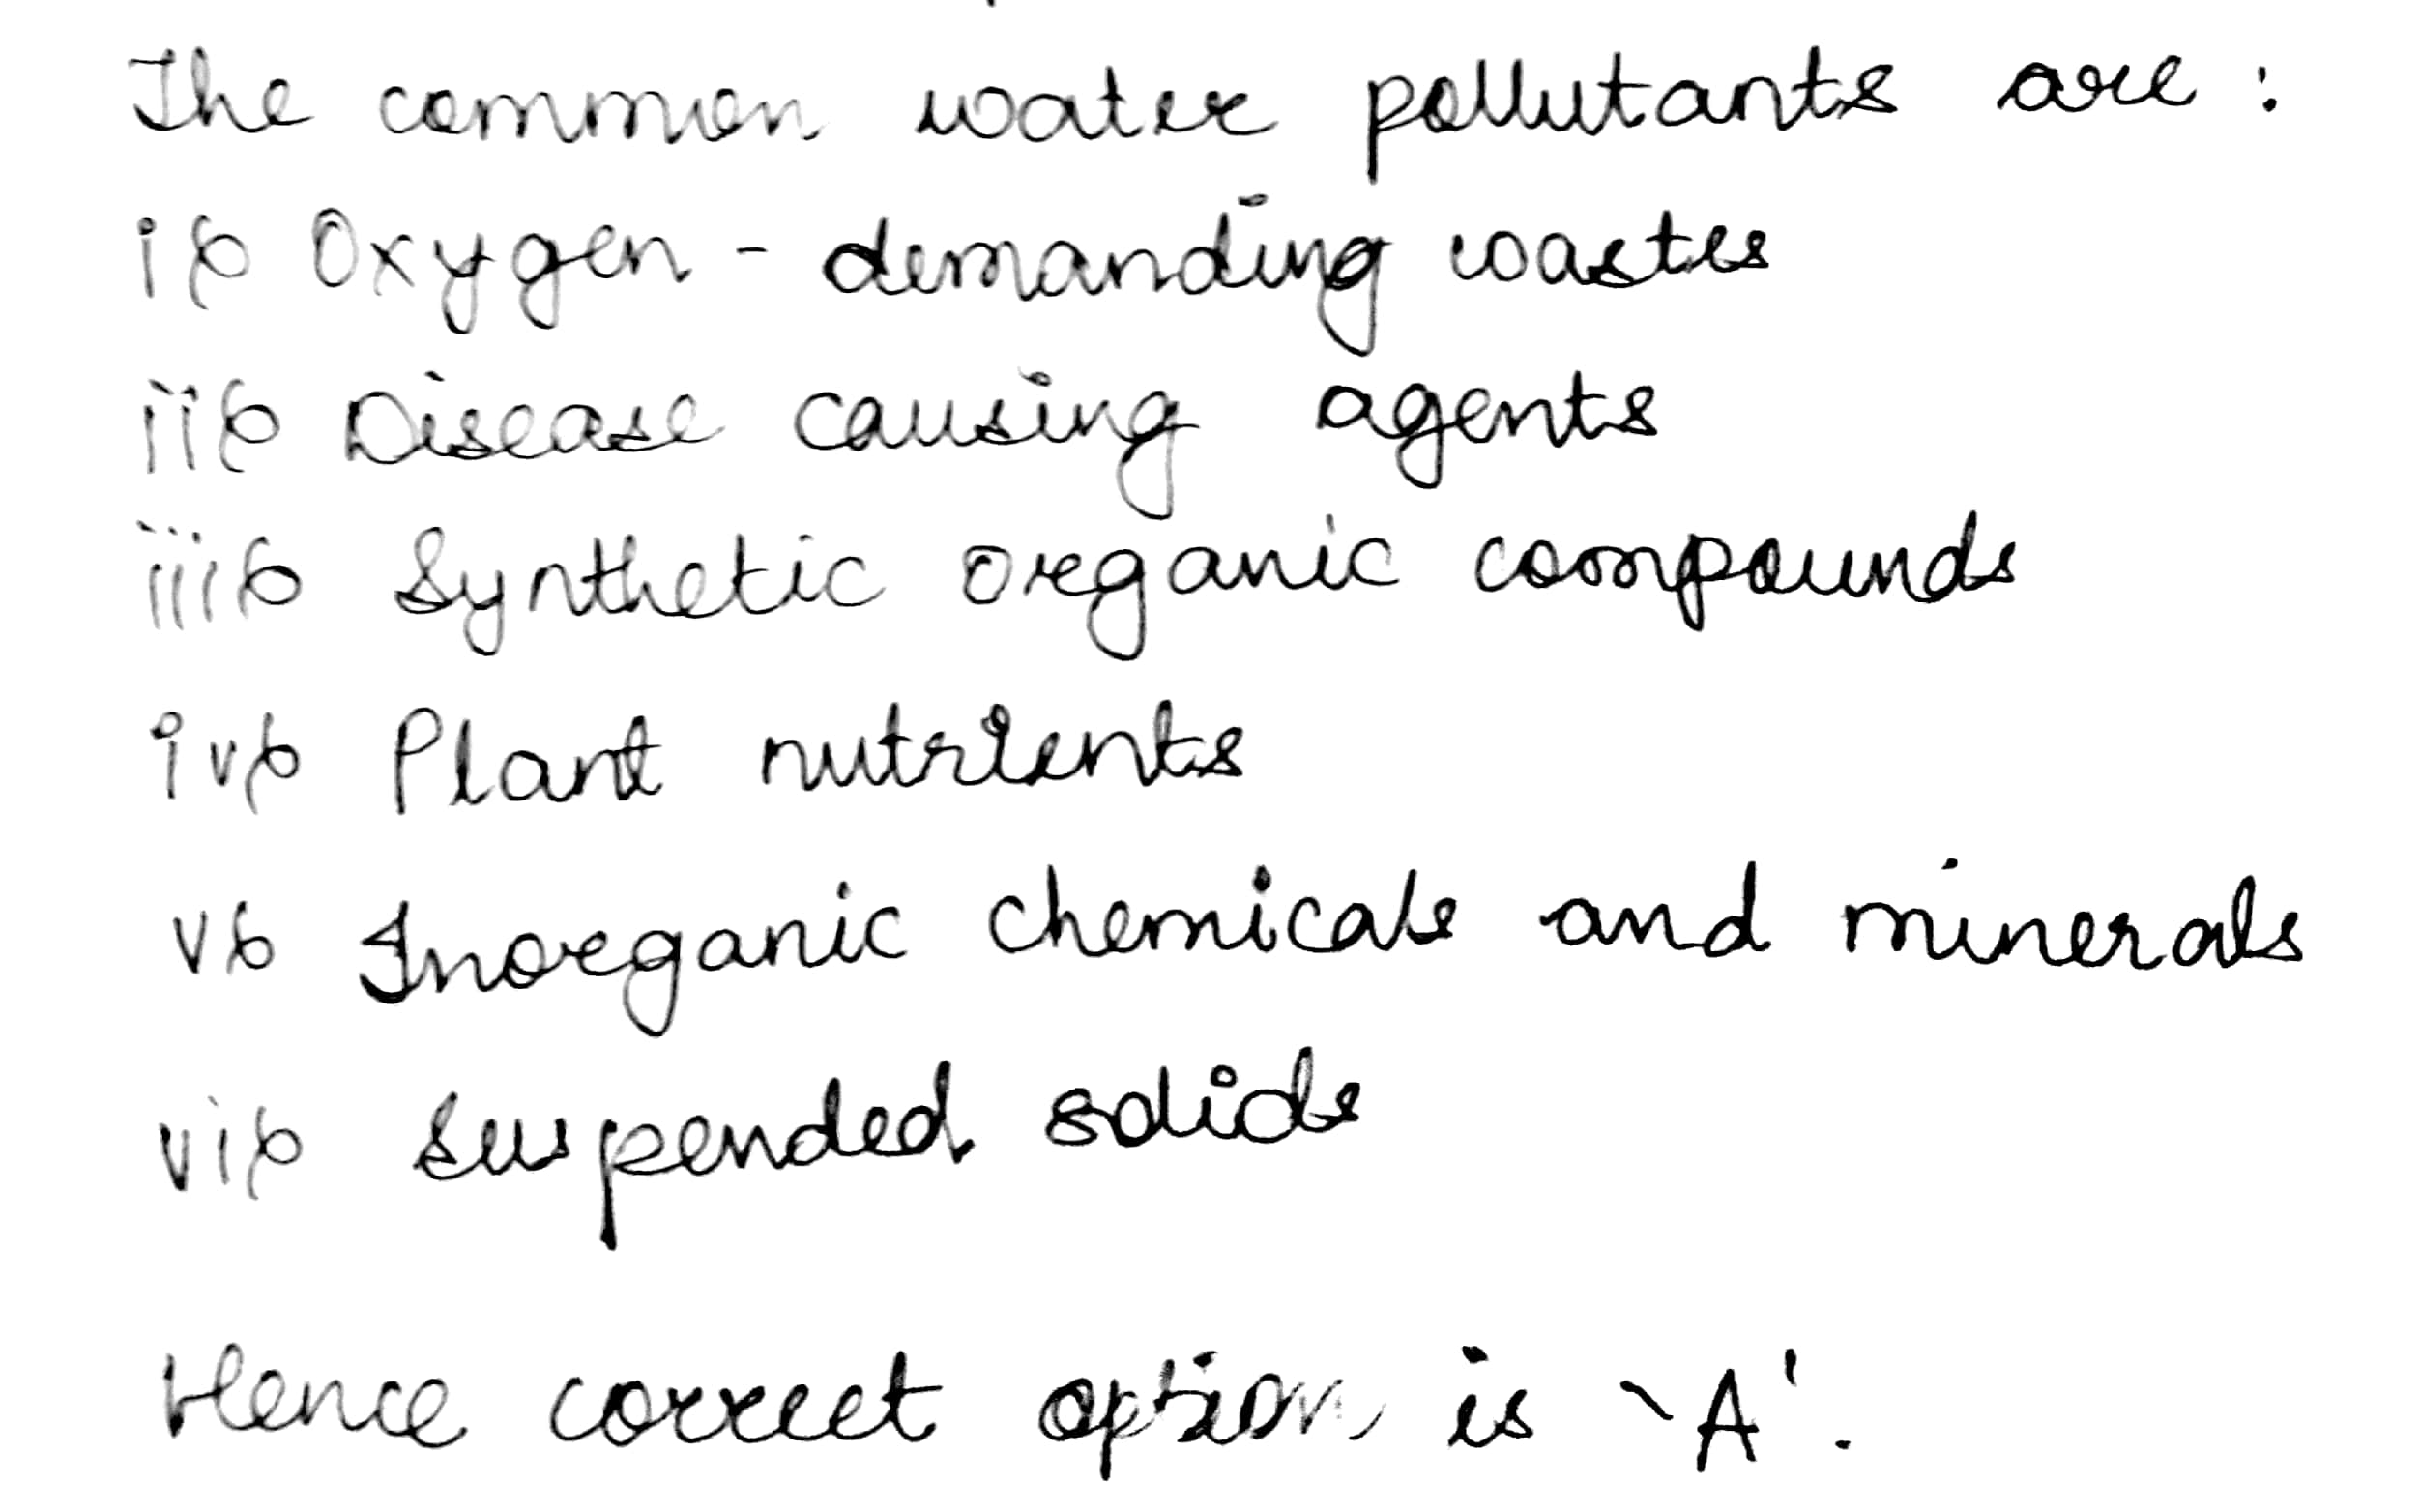 The common water pollutants are :
i) Oxygen - demanding wastes
ii) Disease causing agents
iii) Synthetic organic compounds
iv) Plant nutrients
v) Inorganic chemicals and minerals
vi) Suspended solids
Hence correct option is 'A'.